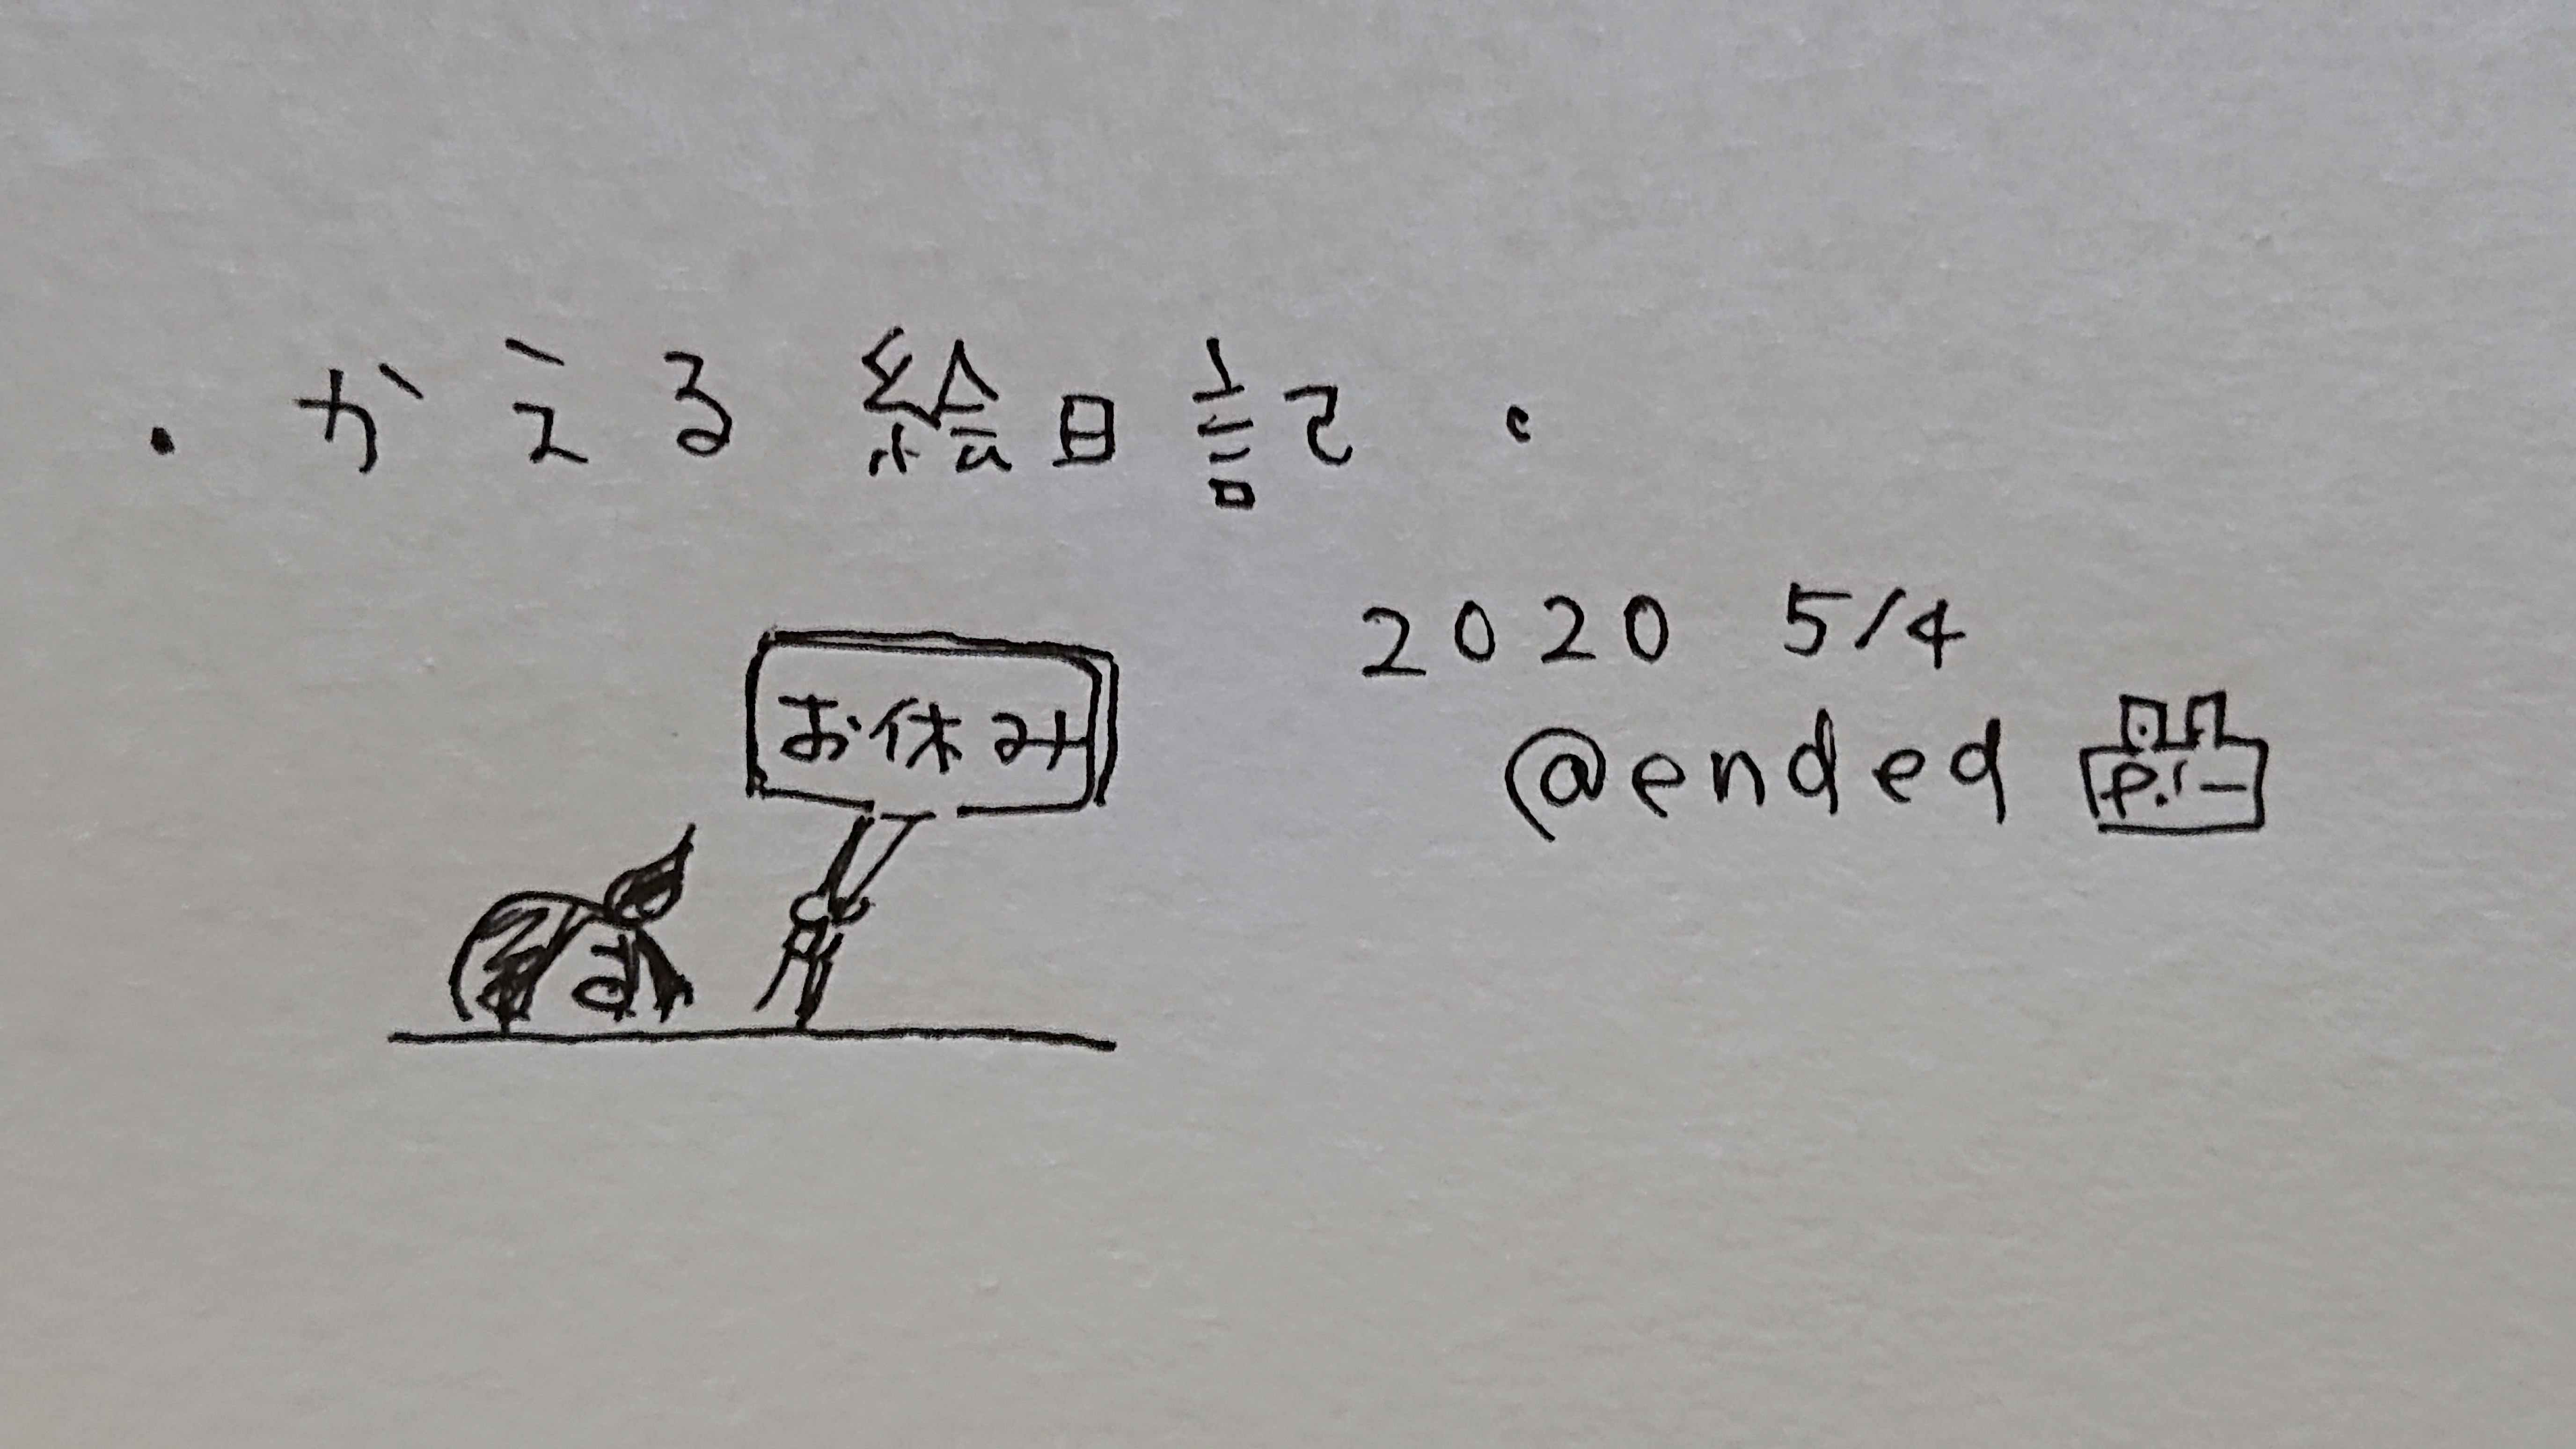 ・かえる 絵日記・
2020 5/4
お休み
@ended